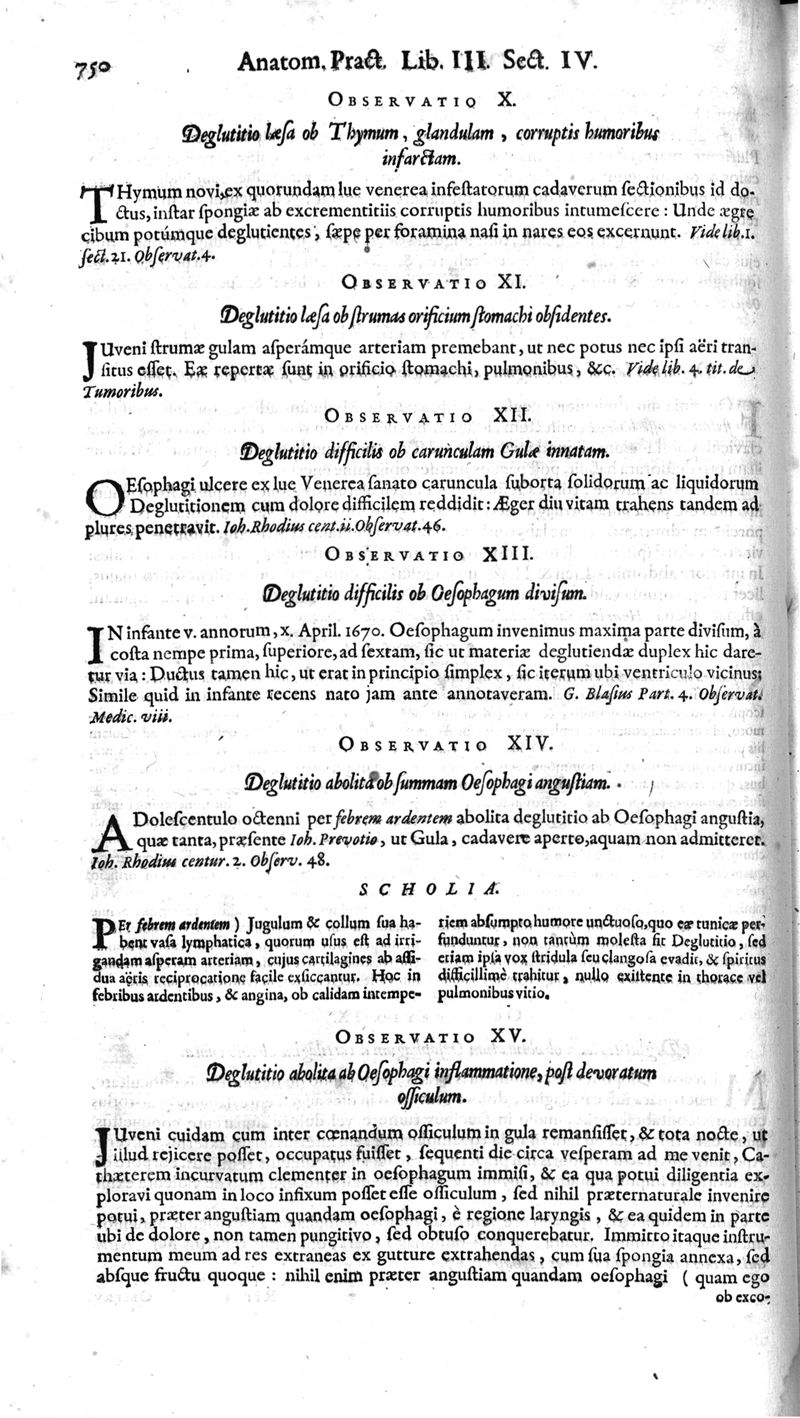 750
Anatom. Pract. Lib. III. Sect. IV.
OBSERVATIO X.
Deglutitio læsa ob Thymum, glandulam, corruptis humoribus
infarctam.
THymum novi, ex quorundam lue venerea infestatorum cadaverum sectionibus id do-
ctus, instar spongiæ ab excrementitiis corruptis humoribus intumescere: Unde ægre
cibum potúmque deglutientes, sæpe per foramina nasi in nares eos excernunt. Vide lib. 1.
sect. 21. Observat. 4.
OBSERVATIO XI.
Deglutitio læsa ob strumas orificium stomachi obsidentes.
JUveni strumæ gulam asperámque arteriam premebant, ut nec potus nec ipsi aëri tran-
situs esset. Eæ repertæ sunt in orificio stomachi, pulmonibus, &c. Vide lib. 4. tit. de
Tumoribus.
OBSERVATIO XII.
Deglutitio difficilis ob carunculam Gulæ innatam.
OEsophagi ulcere ex lue Venerea sanato caruncula suborta solidorum ac liquidorum
Deglutitionem cum dolore difficilem reddidit: Æger diu vitam trahens tandem ad
plures penetravit. Ioh. Rhodius cent. ii. Observat. 46.
OBSERVATIO XIII.
Deglutitio difficilis ob Oesophagum divisum.
IN infante v. annorum, x. April. 1670. Oesophagum invenimus maxima parte divisum, à
costa nempe prima, superiore, ad sextam, sic ut materiæ deglutiendæ duplex hic dare-
tur via: Ductus tamen hic, ut erat in principio simplex, sic iterum ubi ventriculo vicinus;
Simile quid in infante recens nato jam ante annotaveram. G. Blasius Part. 4. Observat.
Medic. viii.
OBSERVATIO XIV.
Deglutitio abolita ob summam Oesophagi angustiam.
ADolescentulo octenni per febrem ardentem abolita deglutitio ab Oesophagi angustia,
quæ tanta, præsente Ioh. Prevotio, ut Gula, cadavere aperto, aquam non admitteret.
Ioh. Rhodius centur. 2. Observ. 48.
SCHOLIA.
PEr febrem ardentem) Jugulum & collum sua ha-
bent vasa lymphatica, quorum usus est ad irri-
gandam asperam arteriam, cujus cartilagines ab assi-
dua aëris reciprocatione facile exsiccantur. Hoc in
febribus ardentibus, & angina, ob calidam intempe-
riem absumpto humore unctuoso, quo eæ tunicæ per-
funduntur, non tantùm molesta fit Deglutitio, sed
etiam ipsa vox stridula seu clangosa evadit, & spiritus
difficillimè trahitur, nullo existente in thorace vel
pulmonibus vitio.
OBSERVATIO XV.
Deglutitio abolita ab Oesophagi inflammatione, post devoratum
officulum.
JUveni cuidam cum inter cœnandum officulum in gula remansisset, & tota nocte, ut
illud rejicere posset, occupatus fuisset, sequenti die circa vesperam ad me venit, Ca-
thæterem incurvatum clementer in oesophagum immisi, & ea qua potui diligentia ex-
ploravi quonam in loco infixum posset esse officulum, sed nihil præternaturale invenire
potui, præter angustiam quandam oesophagi, è regione laryngis, & ea quidem in parte
ubi de dolore, non tamen pungitivo, sed obtuso conquerebatur. Immitto itaque instru-
mentum meum ad res extraneas ex gutture extrahendas, cum sua spongia annexa, sed
absque fructu quoque: nihil enim præter angustiam quandam oesophagi (quam ego
ob exco-